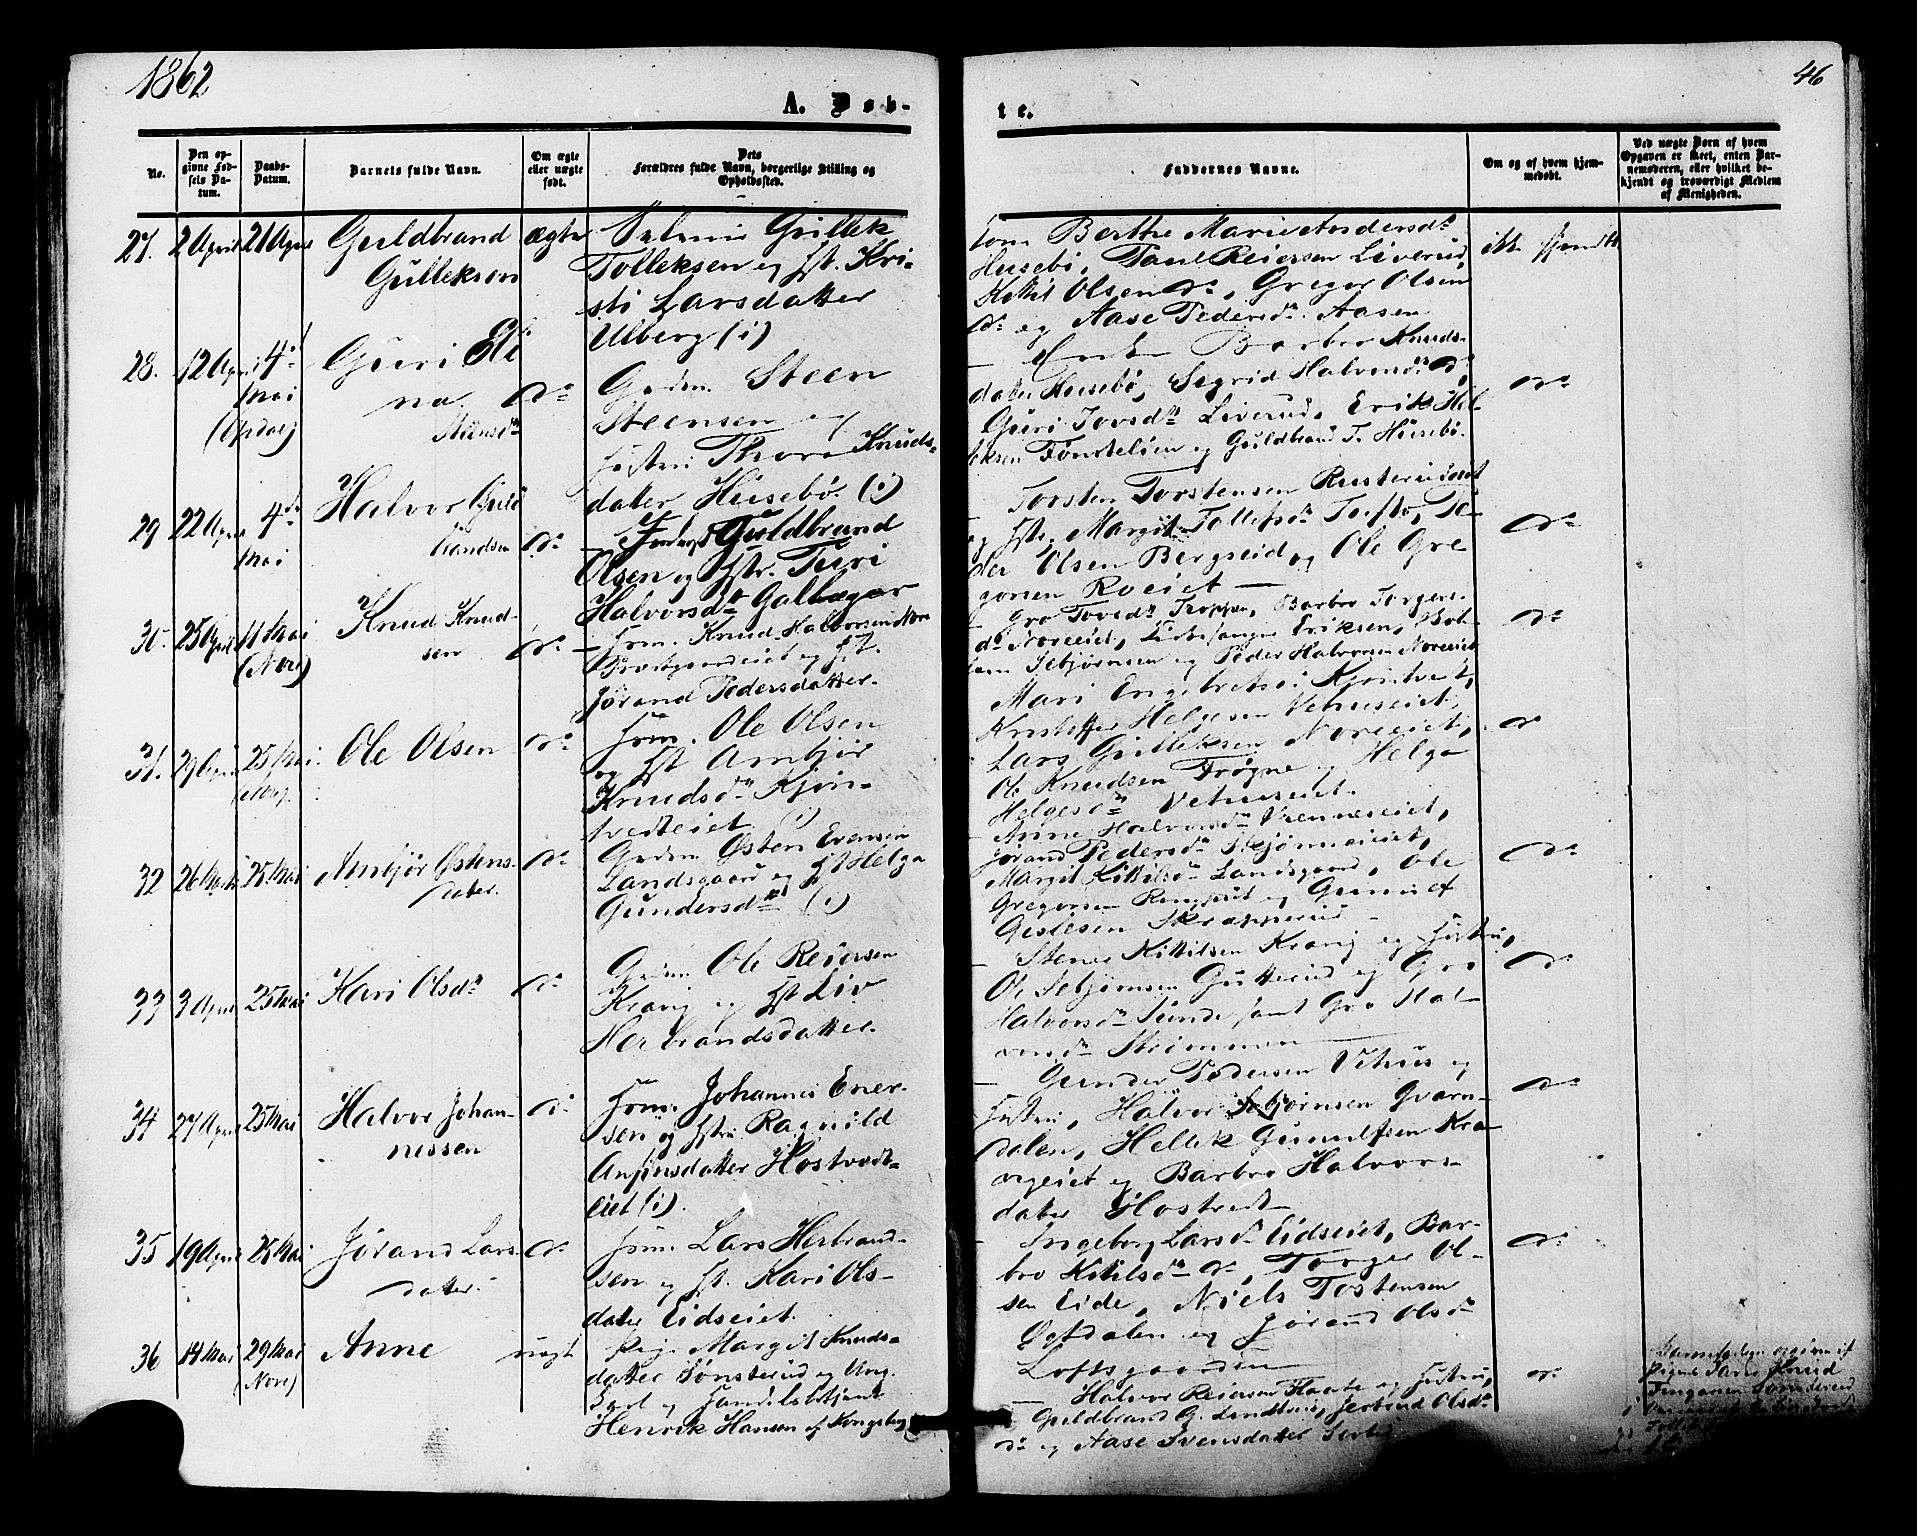 1862
46
A. Døb-
te.
No.
Den op-
givne Fød-
sels Da-
tum.
Daabs-
Datum.
Barnets fulde Navn.
Om ægte
eller uægte
født.
Dets
Forældres fulde Navn, borgerlige Stilling og
Opholdssted.
Faddernes Navne.
Om og af hvem hjem-
medøbt.
Ved uægte Børn af hvem
Opgaven er skeet, enten Bar-
nemoderen, eller hvilket be-
kjendt og troværdigt Medlem
af Menigheden.
27. 2 April 21 April Guldbrand ægte
Gulleksen
Gullek
Tolleksen og Hst. Kri-
sti Larsdatter
Ulberg (i)
Berthe Marie Andersdr
Husebö, Paul Reiersen Liverud,
Kittil Olsen do, Gregor Olsen
do og Aase Pedersdr. Aasen
28. 12 Apri 4de Guri Eli
Mai na do
(Opdal) Steensdr
Grdm. Steen
Steensen og
Hustru Thora Knuds-
datter Husebö (i)
Enke Barbro Knuds-
datter Husebö, Sigrid Halvorsdr do,
Guri Tovsdr Liverud, Erik Hel-
leksen Fönstelien og Guldbrand T. Husebö.
do
29 22 Apr 4de Halvor Guld
Mai brandsen do
Guldbrand
Olsen og Hstr. Turi
Halvorsdr Gallager
Torsten Torstensen Rusterudeiet
og Hst. Margit Tollefsdr Tofto, Pe-
der Olsen Bergseid og Ole Gre-
gorsen Roeiet
do
30. 25 April 11 Mai Knud Knud-
(Nore) sen do
Hsm. Knud Halvorsen Nore
Præstgaardeiet og Hst.
Jörand Pedersdatter.
Gro Tovsdr Troppen, Barbro Torgers-
dr Noreeiet, Eriksen,
Sebjörnsen og Peder Halvorsen Noreeiet
do
31. 29 April 25 Mai Ole Olsen do
Hsm. Ole Olsen
og Hst Ambjör
Knudsdr Kjön-
tvedteiet (i)
Mari Engebretsd
Kristoffer Helgesen Vetruseiet,
Lars Gulleksen Noreeiet,
Ole Knudsen Frøgne og Helga
Helgesdr Vetruseiet.
do
32 26 Marts 25 Mai Ambjör Östens- do
datter.
Grdm Østen Evensen
Landsgaard og Hst Helga
Gundersdr (i)
Anne Halvorsdr Vrenneseiet,
Jörand Pedersdr Skjönneeiet,
Margit Kittilsdr Landsgaard, Ole
Gregorsen og Gunulf
Gislesen Skrapperud
do
33 3 April 25 Mai Kari Olsdr do
Grdm Ole Reiersen
Kravig og Hst Liv
Herbrandsdatter.
Stener Kittilsen Kravig og Hustru,
Ole Sebjörnsen Gutterud og Gro
Halvorsdr Sunde samt Gro Hal-
vorsdr Strömmen
do
34 27 April 25 Mai Halvor Johan- do
nissen
Hsm. Johannis Ener-
sen og Hstru Ragnild
Anfinsdatter Hostvedt-
eiet (i)
Gunder Pedersen Vetrus og
Hustru, Halvor Sebjörnsen Gvarn-
dalen, Hellek Gunulfsen Kra-
vigeiet og Barbro Halvors-
datter Hostvedt
do
35 19 April 25 Mai Jörand Lars- do
datter
Hsm. Lars Herbrand-
sen og Hst. Kari Ols-
datter Eidseiet.
Ingeborg Larsdr Eidseiet, Bar-
bro Kittilsdr do, Torger Ol-
sen Eide, Niels Tostensen
Opdalen og Jörand Olsdr
Loftsgaarden
do
36 14 Mai 29 Mai Anne uægt
(Nore)
Pige Margit Knuds-
datter Sønsterud og Ung-
karl og Handelsbetjent
Henrik Hansen af Kongsberg
Halvor Reiersen Flaate og Hustru,
Guldbrand G. Jorbrud Olsdr
do og Aase Svensdatter
do
Barnefader opgiven af
Pigens Fader Knud